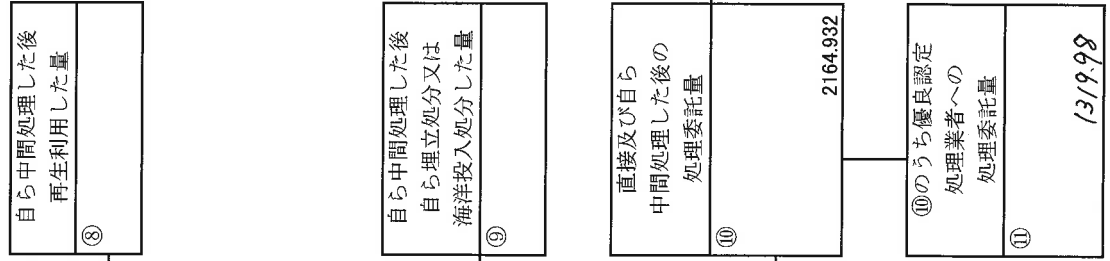 自ら中間処理した後
再生利用した量
⑧
自ら中間処理した後
自ら埋立処分又は
海洋投入処分した量
⑨
直接及び自ら
中間処理した後の
処理委託量
⑩
2164.932
⑩のうち優良認定
処理業者への
処理委託量
⑪
1319.98